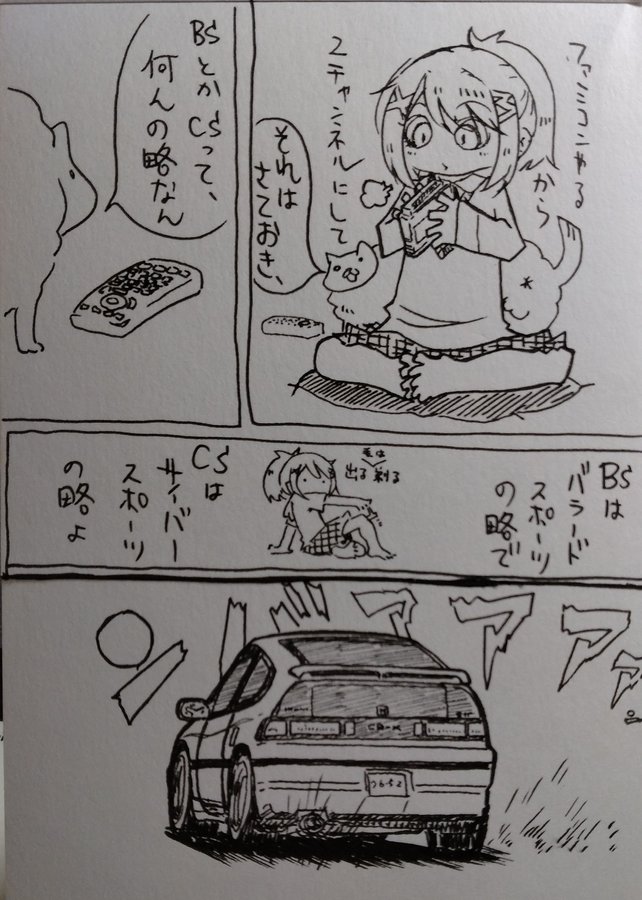 ファミコンやる
から
2チャンネルにして
それは
さておき、
BSとか CSって、
何んの略なん
BSは
バラード
スポーツ
の略で
毛は
出る 剃る
CSは
サイバー
スポーツ
の略よ
アアアァ
CR-X